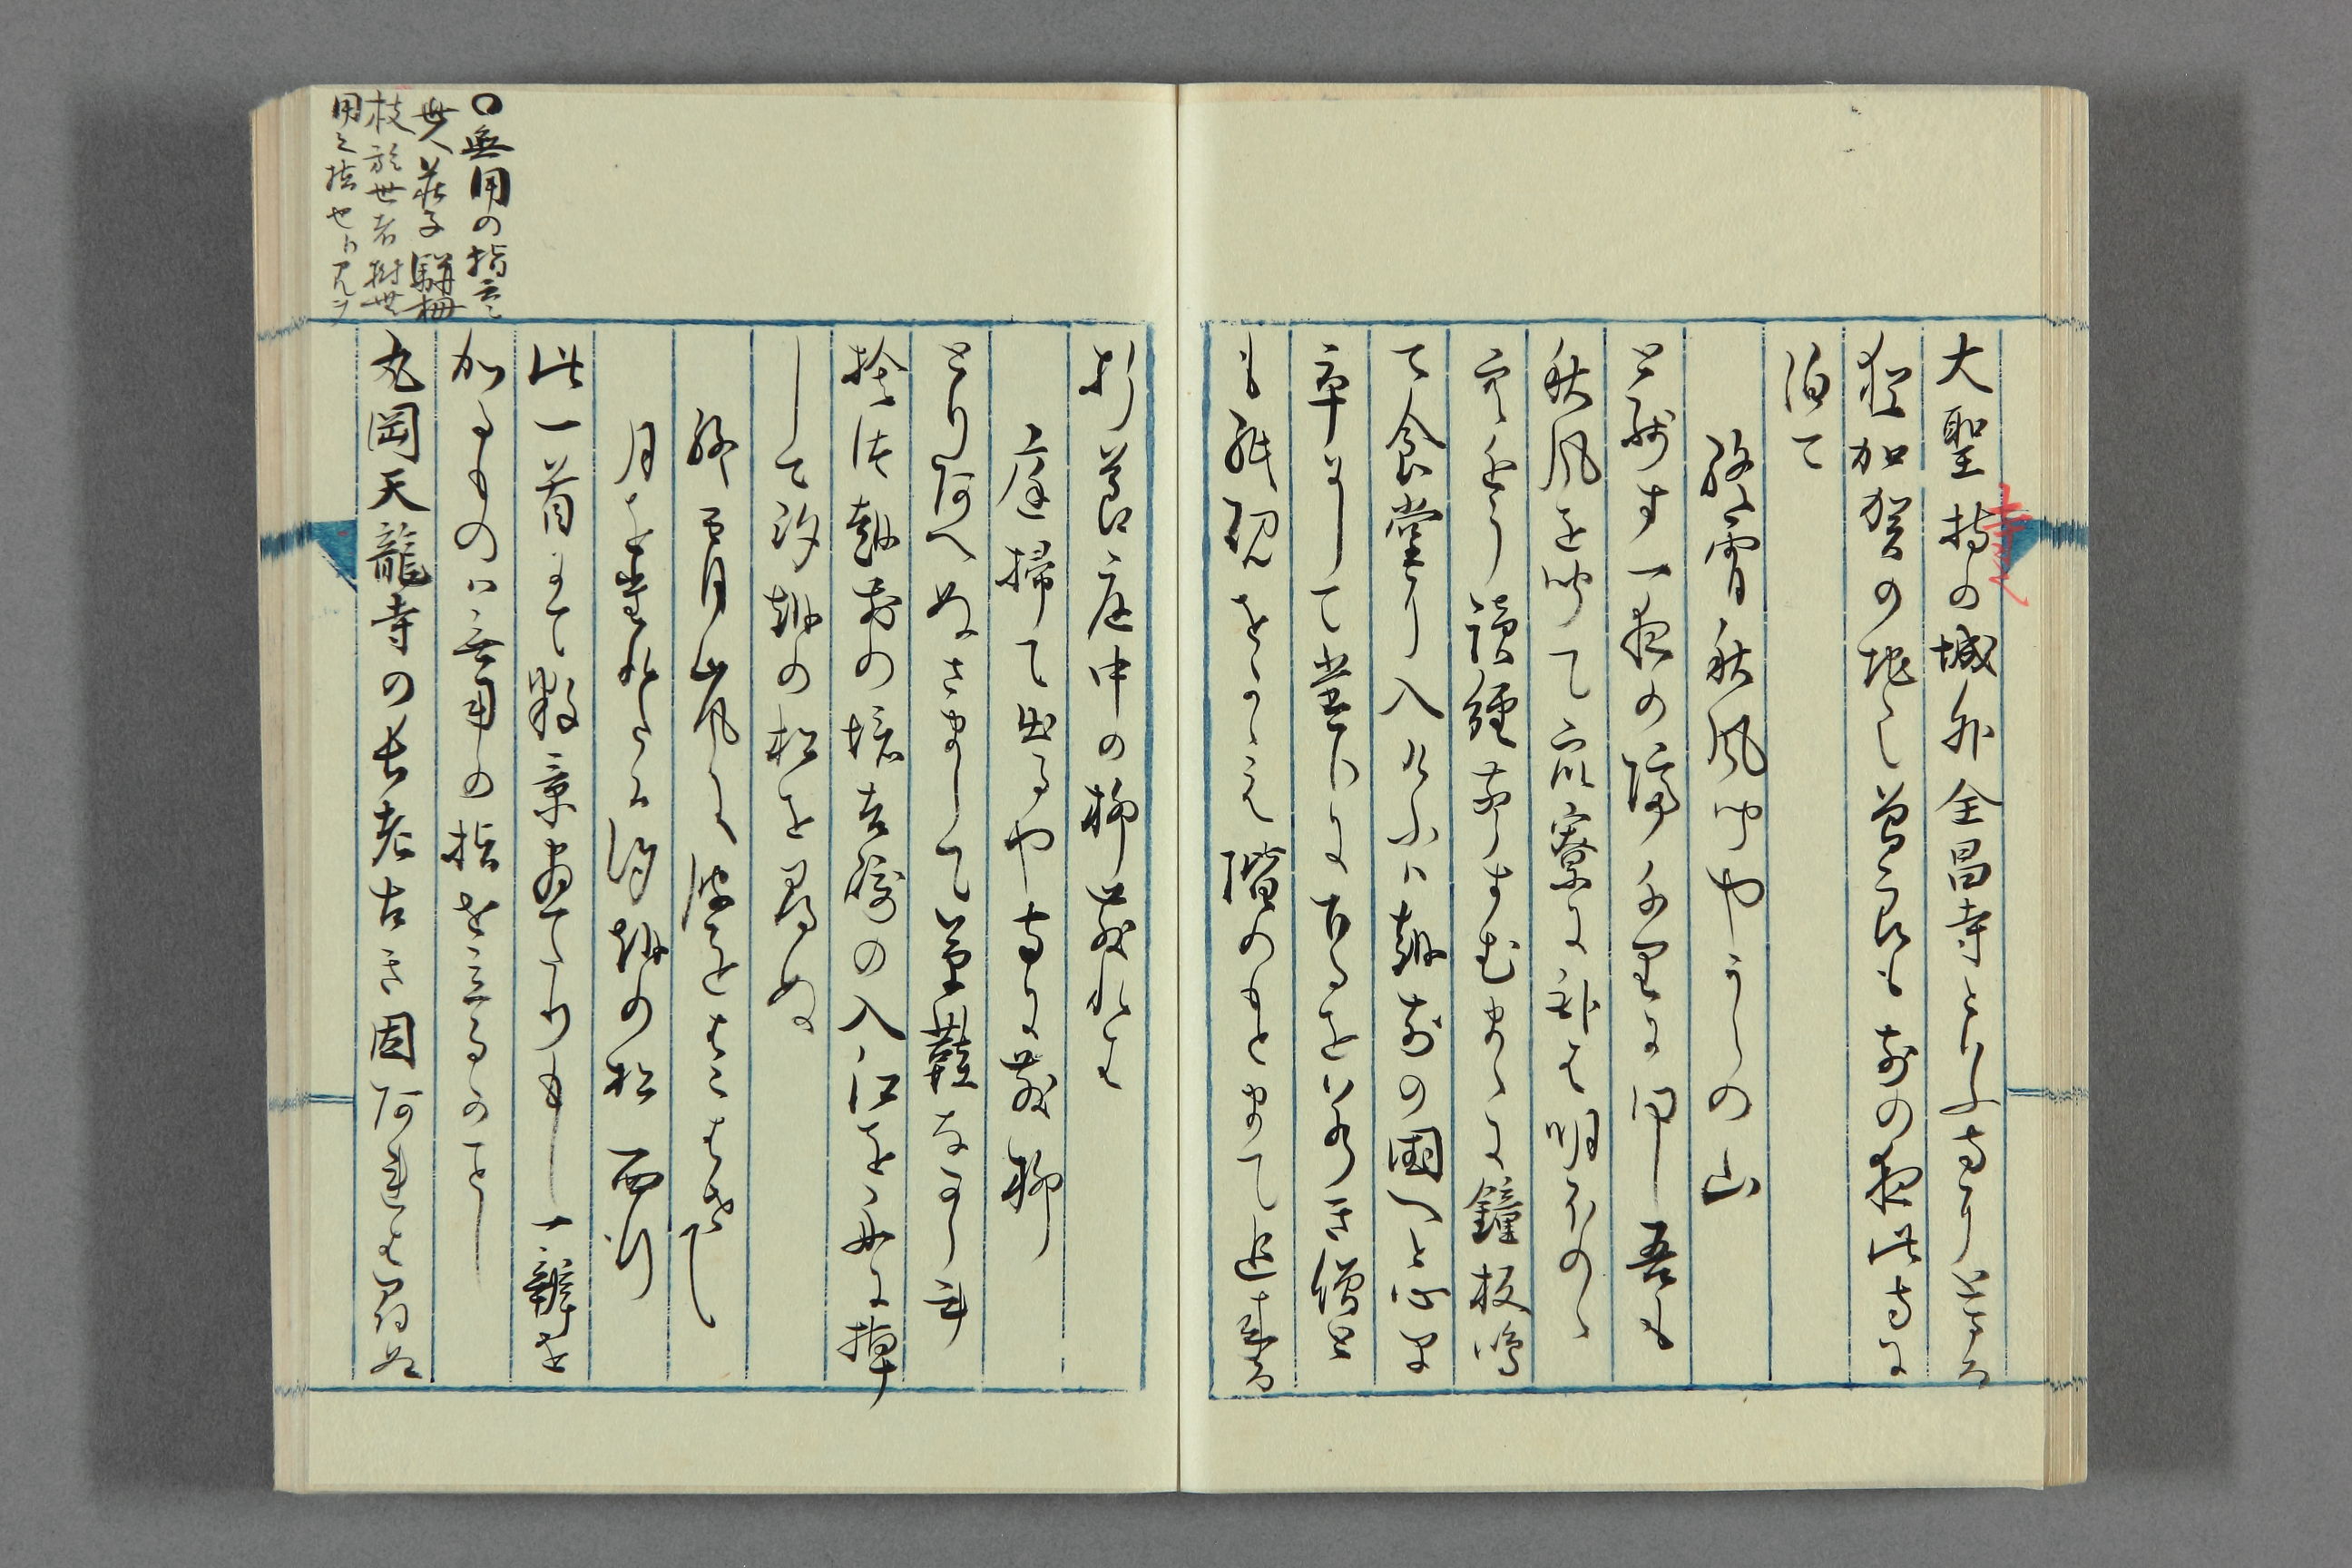 大聖持の城外全昌寺といふ寺にとまる
猶加賀の地也曽良も前の夜此寺に
泊て
終宵秋風聞やうらの山
と残す一夜の隔千里に同し吾も
秋風を聞て衆寮に臥は明ほのゝ
空近う讀經声すむまゝに鐘板鳴
て食堂に入けふは越前の国へと心早
卒にして堂下に下るを若き僧と
も紙硯をかゝえ階のもとまて追来る
折節庭中の柳散れは
庭掃て出るや寺に散柳
とりあへぬさまして草鞋なから書
捨つ越前の境吉崎の入江を舟に棹
して汐越の松を尋ぬ
終宵嵐に波をはこはせて
月をたれたる汐越の松 西行
此一首にて数景盡たりもし一辨を
加るものは無用の指を立るかことし
丸岡天龍寺の長老古き因阿れは尋ぬ
〇無用の指
莊子駢拇
枝於 者樹無
用之指也ト見ヱ